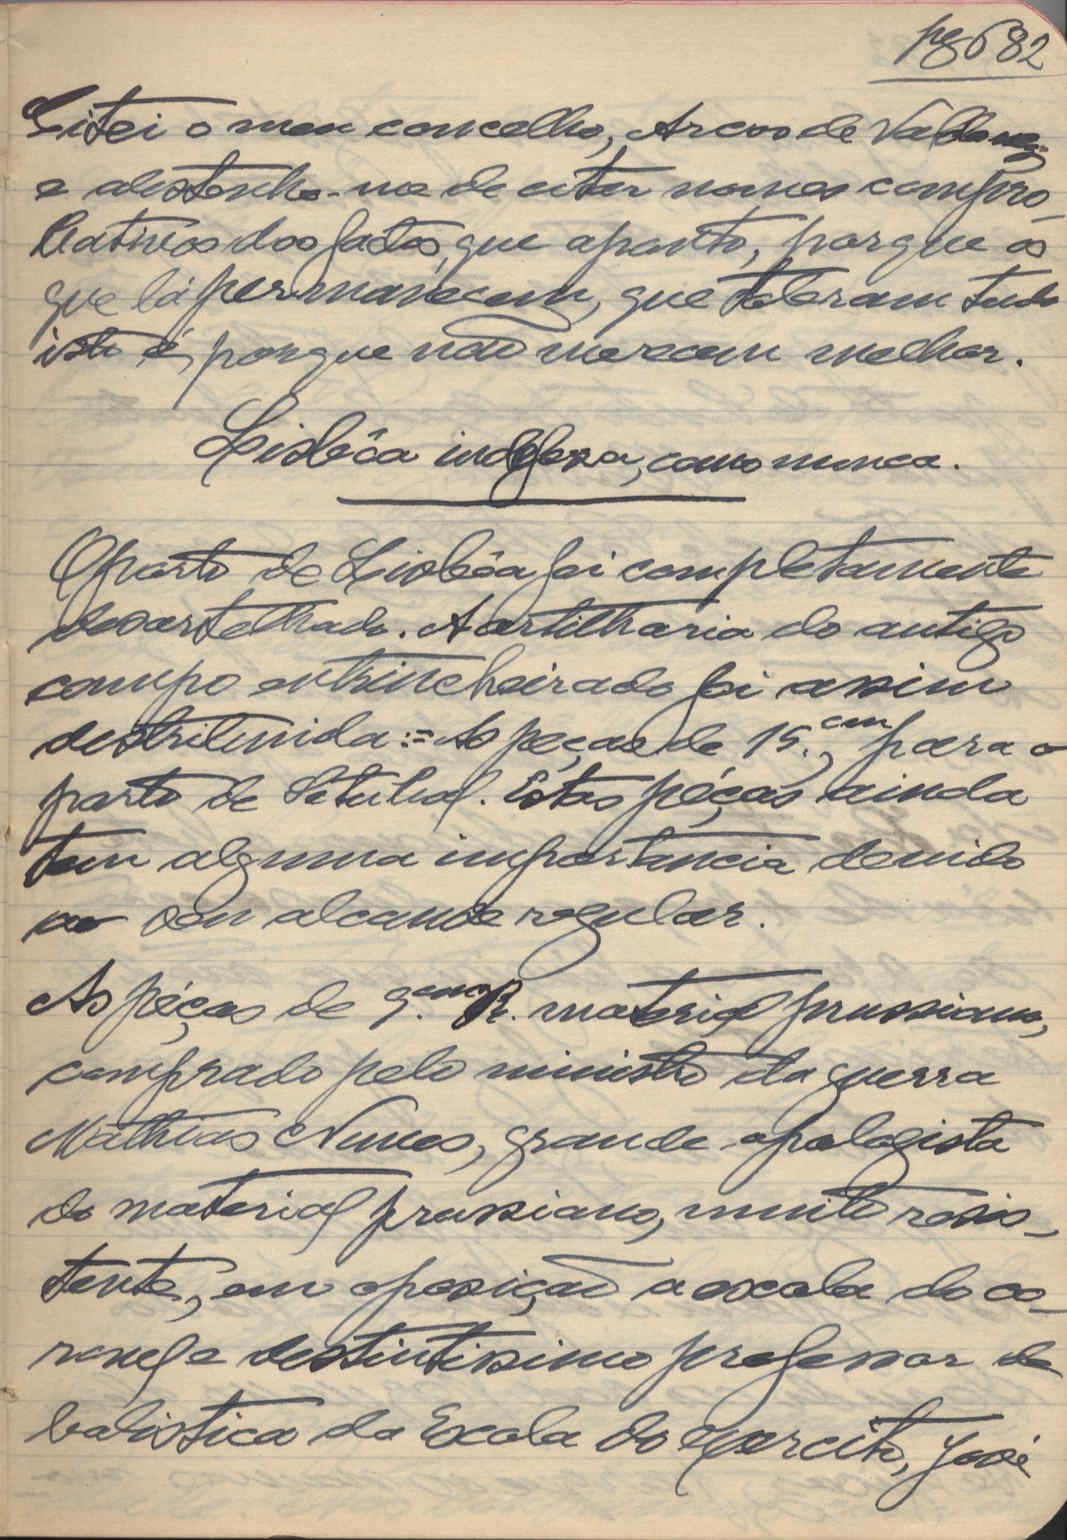 pg 682
Citei o meu concelho, Arcos de Valdevez
e abstenho-me de citar nomes compro-
bativos dos factos, que aponto, porque os
que lá permanecem, que toleram tudo
isto é, porque não merecem melhor.
Lisbôa indefeza, como nunca.
O porto de Lisbôa foi completamente
desartelhado. A artilharia do antigo
campo entrincheirado foi assim
destribuida:= As peças de 15.cm, para o
porto de Setubal. Estas peças ainda
tem alguma importancia devido
ao seu alcance regular.
As peças de 9.cm R. material prussiano,
comprado pelo ministro da guerra
Mathias Nunes, grande apologista
do material prussiano, muito resis-
tente, em oposição a escola do co-
ronel e destintissimo professor de
balistica da Escola do Exercito, José